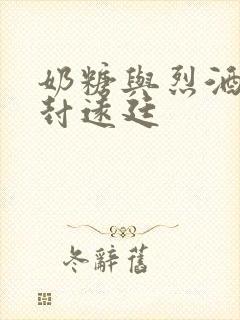 奶糖與烈酒
封遠廷
冬辭舊